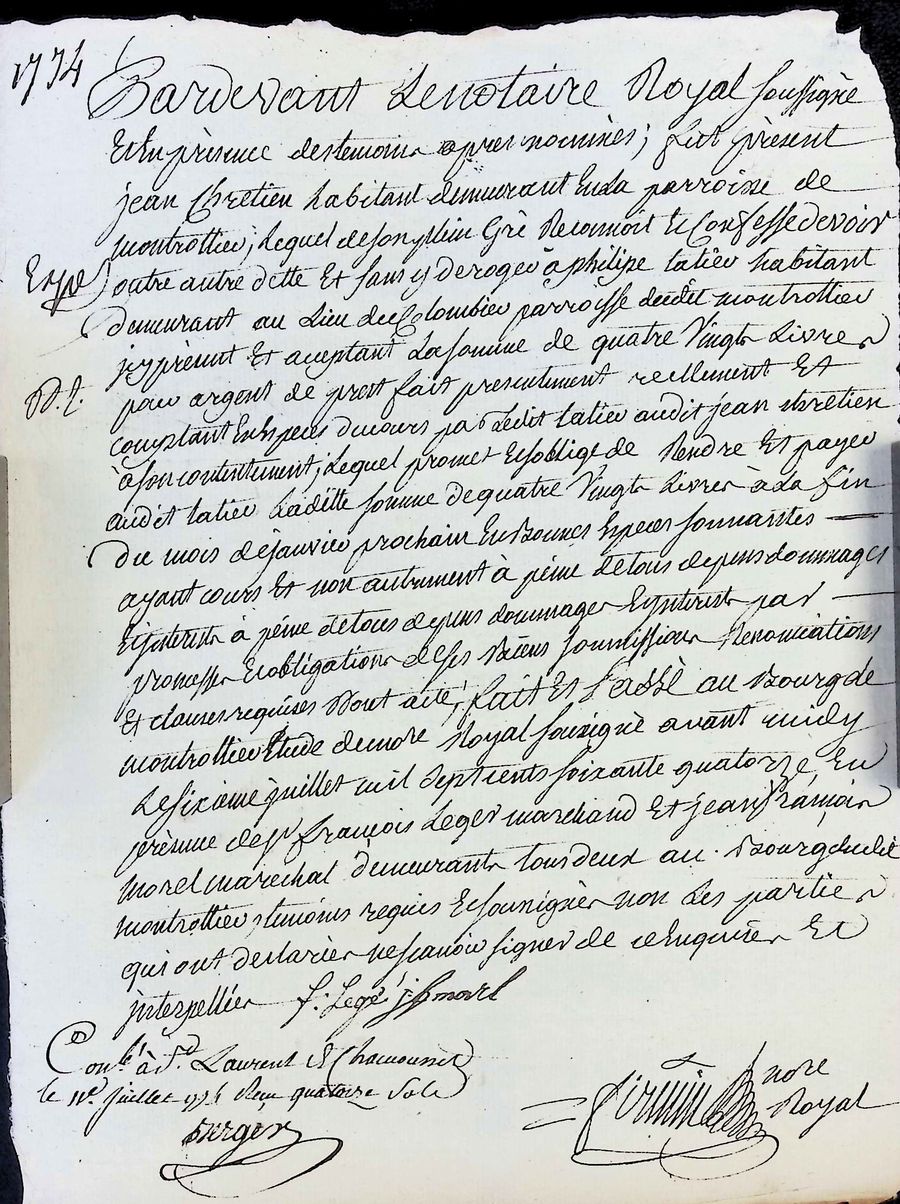 1774
Pardevant Le notaire Royal soussigne
Et En présence des temoins apres nommés; fut présent
jean Chretien habitant demeurant En La parroisse de
montrottier, Lequel de son plein Gré Reconnoit Et Confesse devoir
Expé
outre autre dette Et sans y deroger à philipe latier habitant
demeurant au Lieu du Colombier parroisse dudit montrottier
jcy présent Et aceptant La somme de quatre Vingts Livres
pour argent de prest fait presentement reellement Et
comptant En Especes du cours par Ledit latier audit jean chretien
à son contentement; Lequel promet Et s'oblige de Rendre Et payer
audit latier Laditte somme de quatre Vingts Livres à La fin
du mois de janvier prochain En Bonnes Especes sonnantes
ayant cours Et non autrement à peine de tous depens dommages
Et jnterests à peine de tous depens dommages Et jnterests par
promesses Et obligations de ses Biens soumissions Renonciations
Et clauses requises Dont acte; fait Et Passé au Bourg de
montrottier Etude du nore Royal sousigné avant midy
Le sixieme juillet mil sept cents soixante quatorze, En
presence de sr françois Leger marchand Et jean françois
morel marechal demeurants tous deux au Bourg dudit
montrottier, temoins requis Et sousignés non Les parties
qui ont declarées ne scavoir signer de ce Enquises Et
jnterpellées f. Legé j f morel
Conle à St. Laurent de Chamousset
le 11e juillet 1774 Reçu quatorze Sols
Berger
nore
Royal